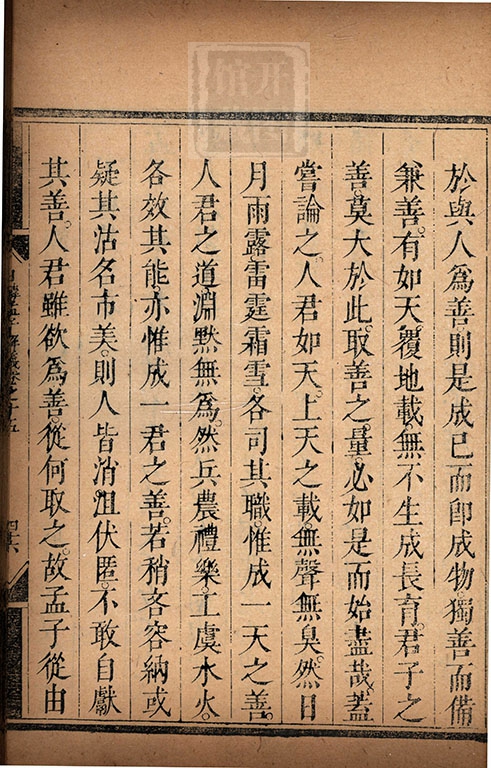 於與人為善則是成己而卽成物獨善而備
兼善有如天覆地載無不生成長育君子之
善莫大於此取善之量必如是而始盡哉葢
嘗論之人君如天上天之載無聲無臭然日
月雨露雷霆霜雪各司其職惟成一天之善
人君之道淵默無爲然兵農禮樂工虞水火
各效其能亦惟成一君之善若稍吝容納或
疑其沽名市美則人皆消沮伏匿不敢自獻
其善人君雖欲爲善從何取之故孟子從由